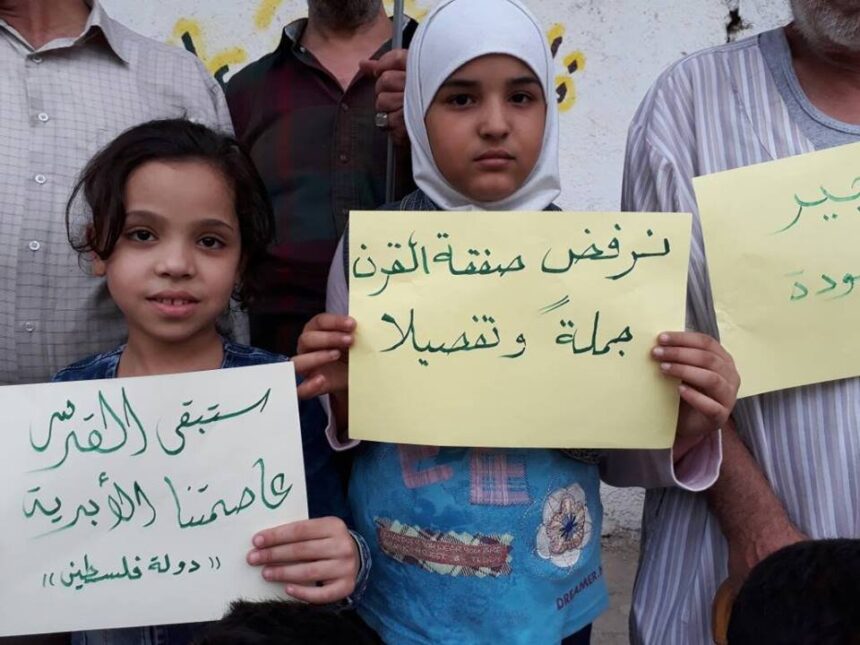 استبقى القدس
عاصمتنا الأبدية
((دولة فلسطين))
نرفض صفقة القرن
جملةً وتفصيلا
جير
ودة
DREAMER